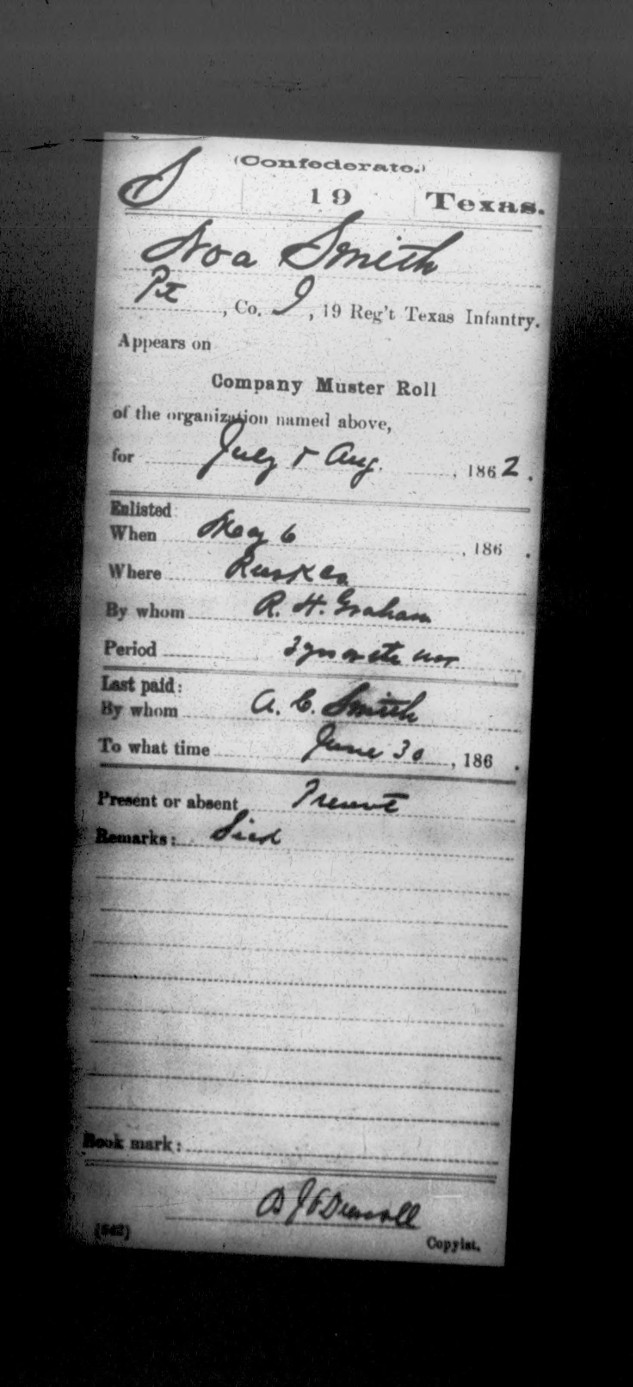 (Confederate.)
S 19 Texas.
Noa Smith
Pt, Co. I, 19 Reg't Texas Infantry.
Appears on
Company Muster Roll
of the organization named above,
for July & Aug., 1862.
Enlisted:
When May 6, 186 .
Where Rusk Co
By whom R. H. Graham
Period 3 yrs or the war
Last paid:
By whom A. C. Smith
To what time June 30, 186 .
Present or absent Present
Remarks:
Book mark:
(642)
Copyist.